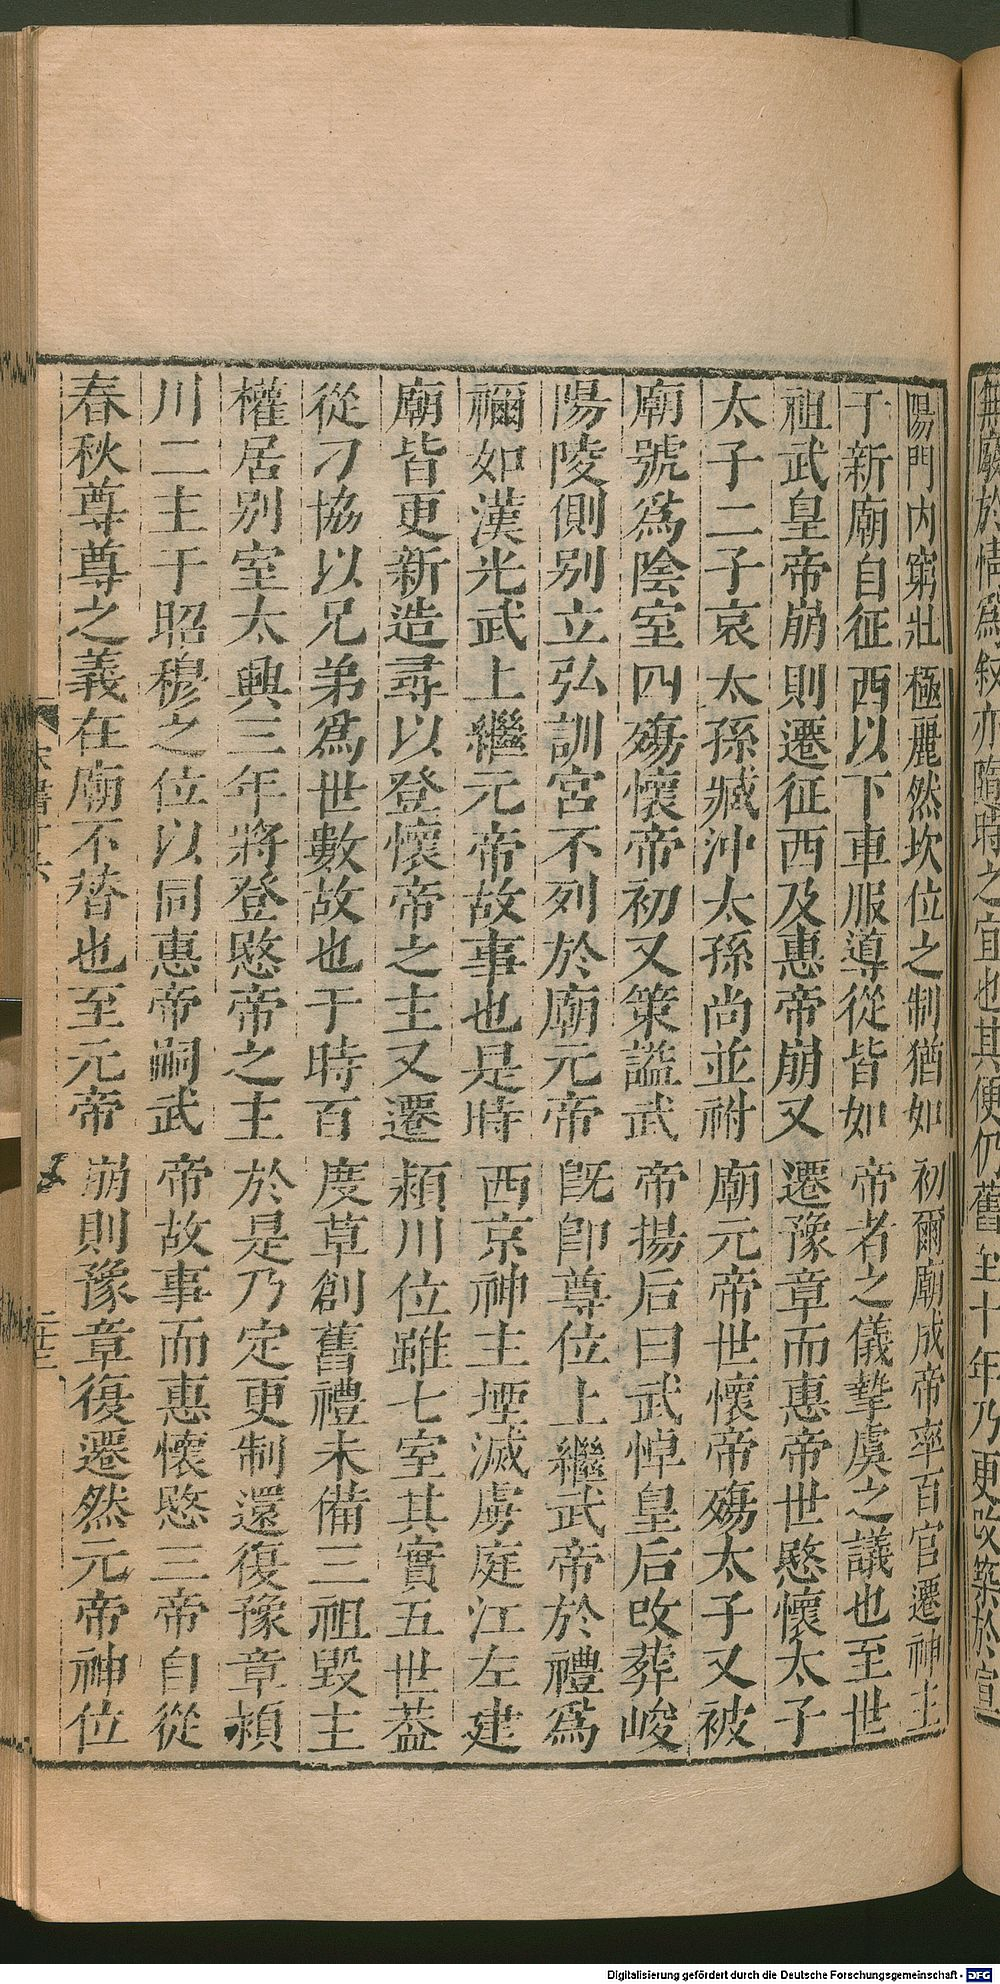 無廢於情爲叙亦隨時之宜也其便仍舊至十年乃更改築於宣
陽門内窮壯極麗然坎位之制猶如初爾廟成帝率百官遷神主
于新廟自征西以下車服導從皆如帝者之儀摯虞之議也至世
祖武皇帝崩則遷征西及惠帝崩又遷豫章而惠帝世愍懷太子
太子二子哀太孫臧沖太孫尚並祔廟元帝世懷帝殤太子又被
廟號爲陰室四殤懷帝初又策謚武帝揚后曰武悼皇后改葬峻
陽陵側别立弘訓宮不列於廟元帝既即尊位上繼武帝於禮爲
禰如漢光武上繼元帝故事也是時西京神主堙滅虜庭江左建
廟皆更新造尋以登懷帝之主又遷潁川位雖七室其實五世蓋
從刁協以兄弟爲世數故也于時百度草創舊禮未備三祖毀主
權居别室太興三年將登愍帝之主於是乃定更制還復豫章潁
川二主于昭穆之位以同惠帝嗣武帝故事而惠懷愍三帝自從
春秋尊尊之義在廟不替也至元帝崩則豫章復遷然元帝神位
Digitalisierung gefördert durch die Deutsche Forschungsgemeinschaft - DFG